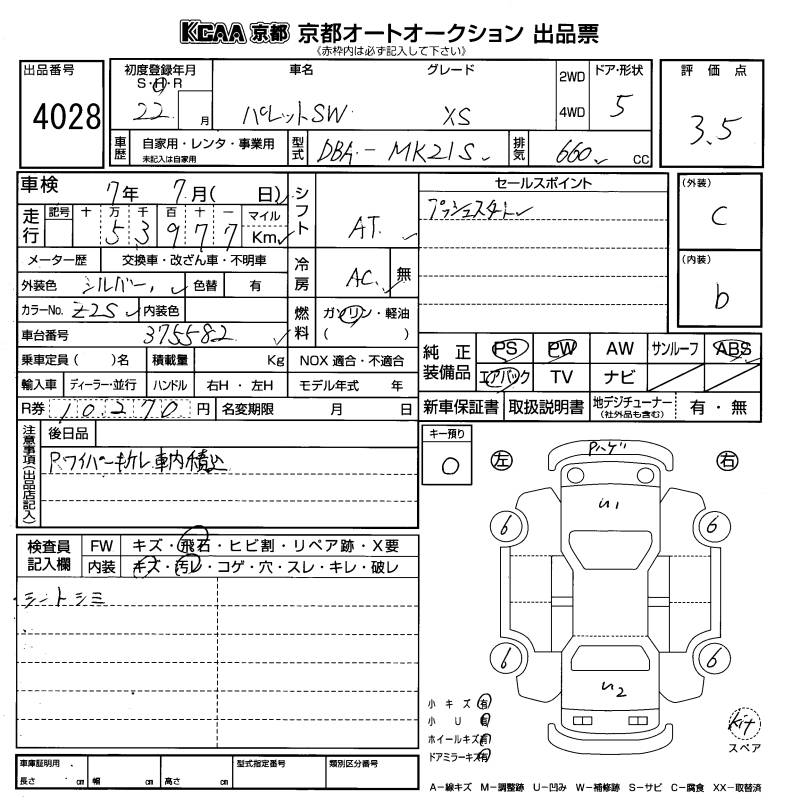 KCAA 京都 京都オートオークション 出品票
《赤枠内は必ず記入して下さい》
出品番号
4028
初度登録年月
S・H・R
22 月
車名
パレットSW
グレード
XS
2WD
4WD
ドア・形状
5
評価点
3.5
車歴
自家用・レンタ・事業用
未記入は自家用
型式
DBA-MK21S
排気
660 CC
車検
7年 7月( 日)
シフト
AT
走行
記号 十 万 千 百 十 一
5 3 9 7 7
マイル
Km
メーター歴 交換車・改ざん車・不明車
冷房
AC
無
外装色 シルバー 色替 有
カラーNo. Z2S 内装色
燃料
ガソリン・軽油
( )
車台番号 375582
乗車定員( )名 積載量 Kg NOX 適合・不適合
輸入車 ディーラー・並行 ハンドル 右H・左H モデル年式 年
R券 10270 円 名変期限 月 日
セールスポイント
プッシュスタート
(外装)
C
(内装)
b
純正装備品
PS PW AW サンルーフ ABS
エアバック TV ナビ
新車保証書 取扱説明書 地デジチューナー
(社外品も含む)
有・無
注意事項(出品店記入)
後日品
Rワイパー折レ 車内積込
キー預り
0
左
右
Pハゲ
U1
6
6
6
6
U2
kit
スペア
検査員記入欄
FW キズ・飛石・ヒビ割・リペア跡・X要
内装 キズ・汚レ・コゲ・穴・スレ・キレ・破レ
シートシミ
小キズ有
小U有
ホイールキズ有
ドアミラーキズ有
車庫証明用
長さ cm 幅 cm 高さ cm
型式指定番号
類別区分番号
A-線キズ M-調整跡 U-凹み W-補修跡 S-サビ C-腐食 XX-取替済